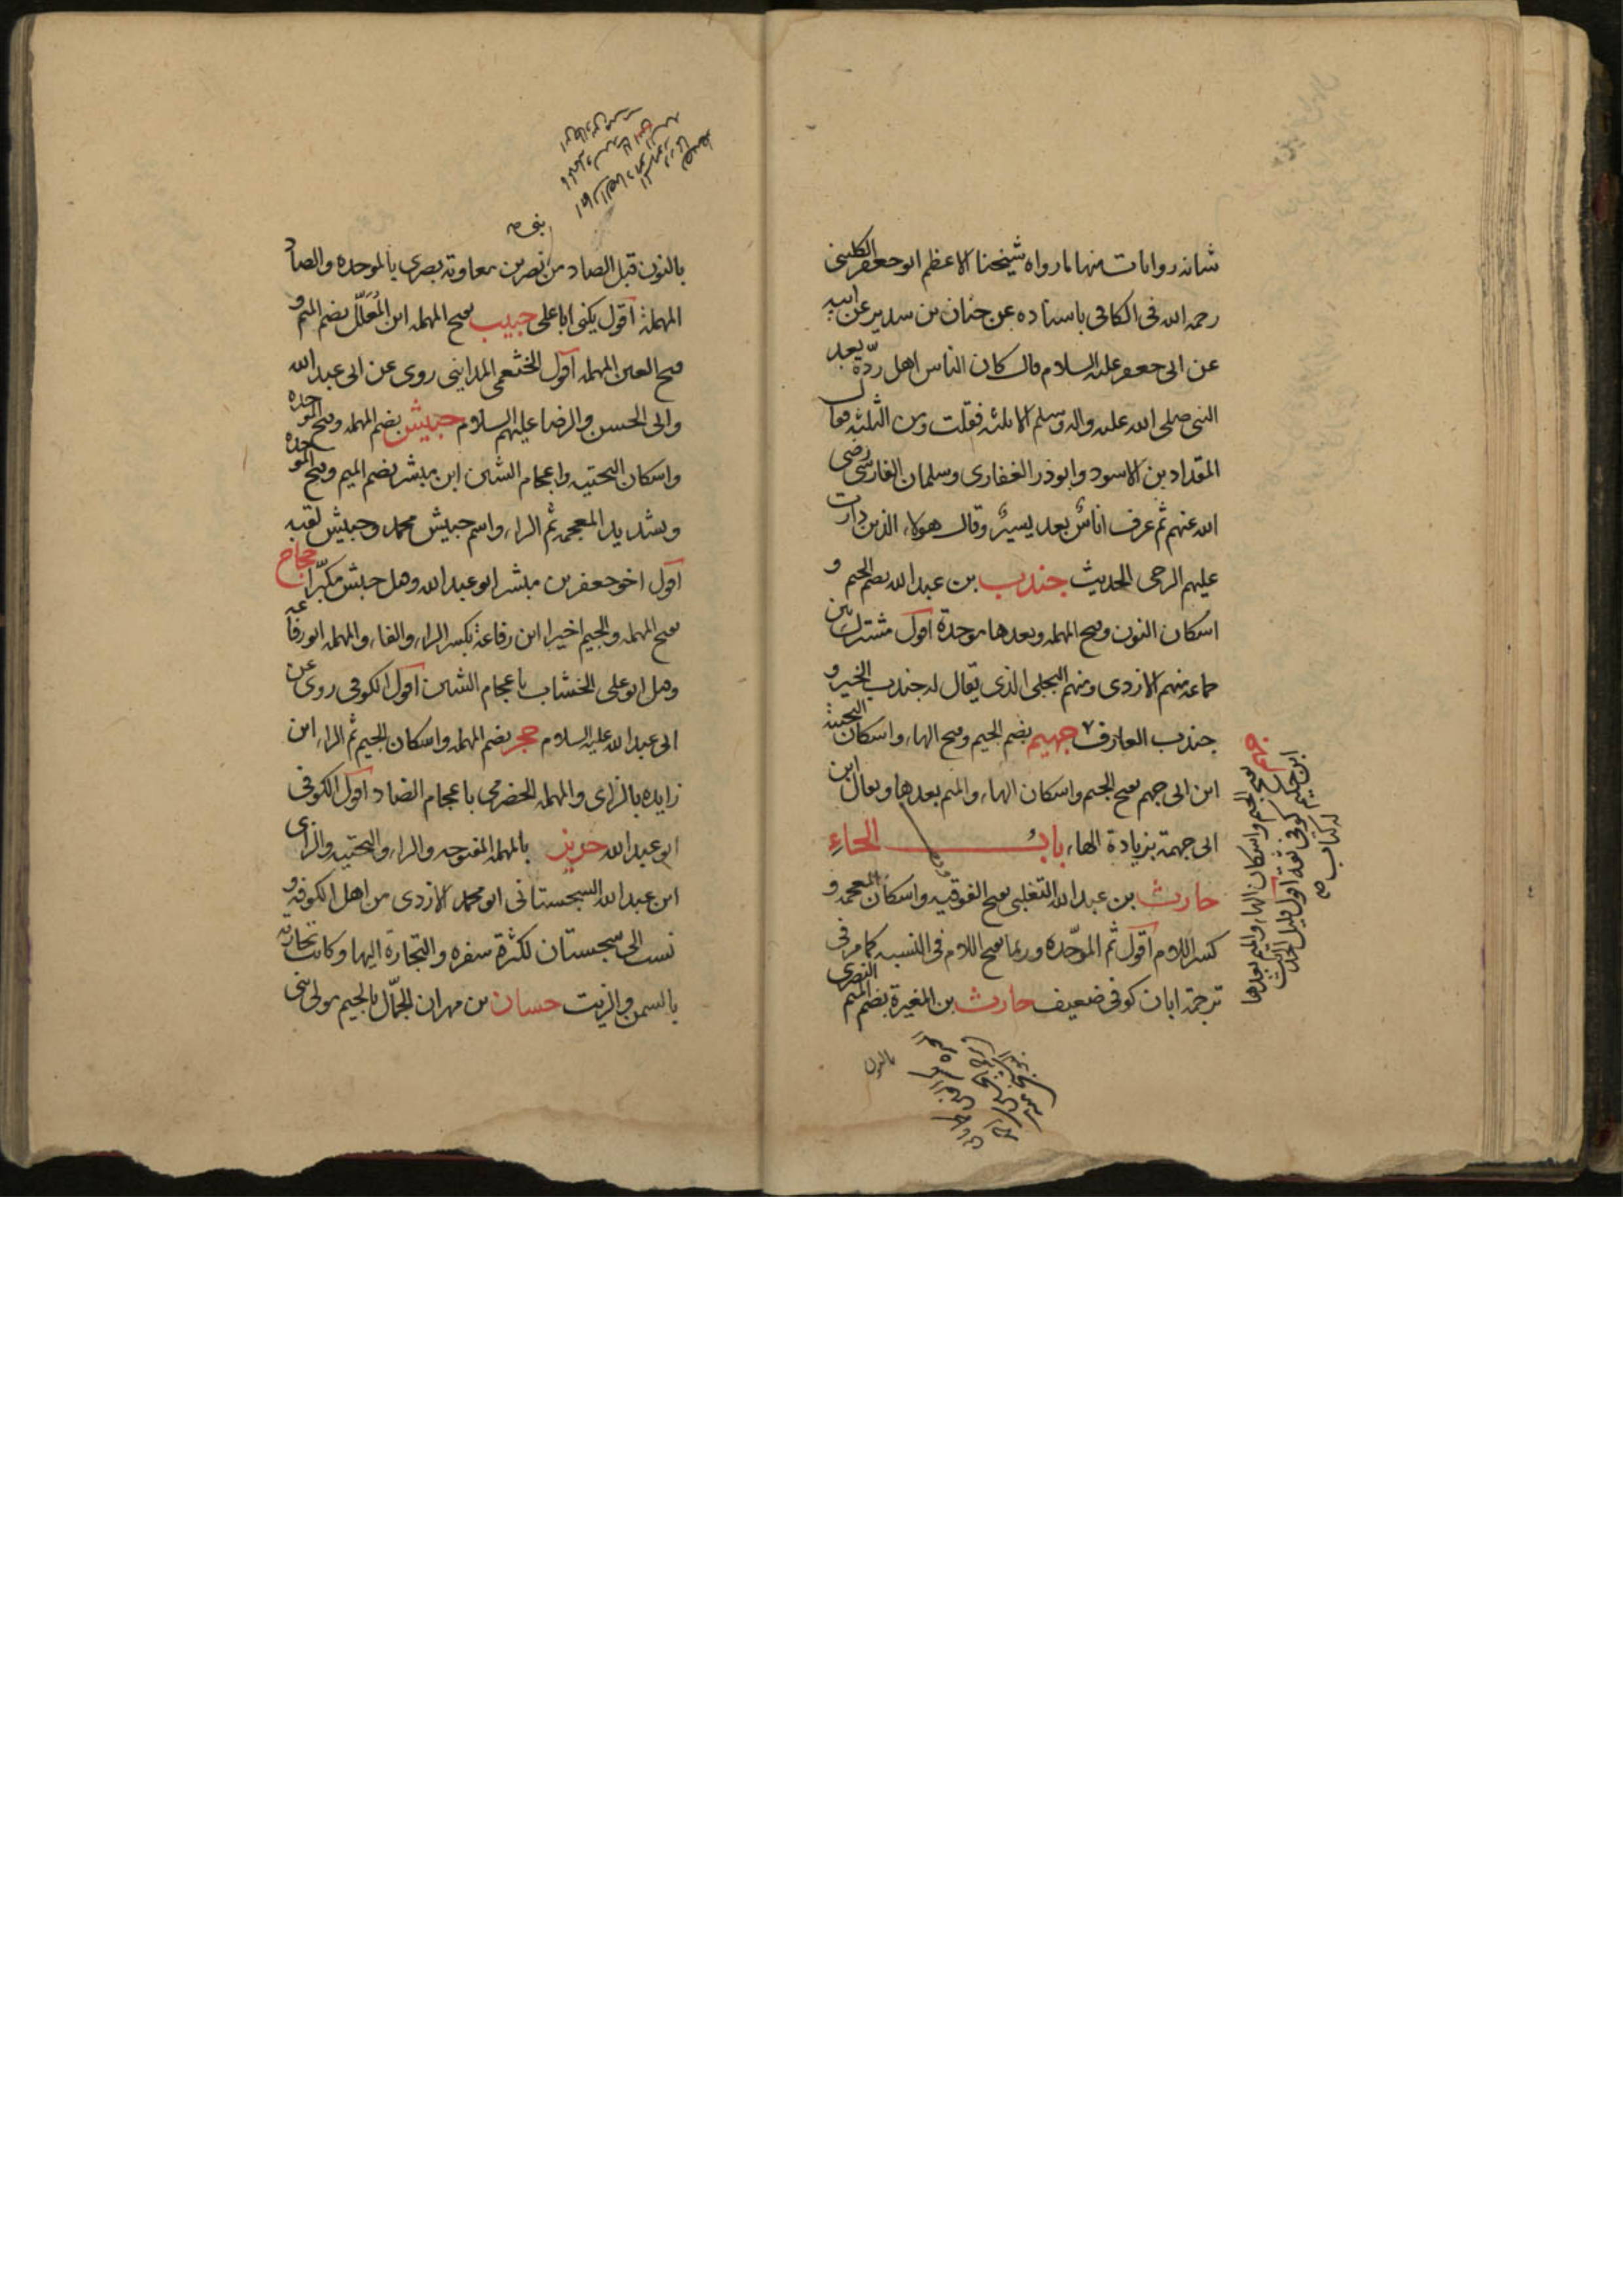 شانه روايات منها ما رواه شيخنا الاعظم ابو جعفر الكلينى
رحمه الله فى الكافى باسناده عن حنان بن سدير عن ابيه
عن ابى جعفر عليه السلام قال كان الناس اهل ردّة بعد
النبى صلى الله عليه واله وسلم الا ثلثه فقلت ومن الثلثه فقال
المقداد بن الاسود وابوذر الغفارى وسلمان الفارسى رضى
الله عنهم ثم عرف اناسٌ بعد يسيرٌ وقال هولاء الذين دارت
عليهم الرحى الحديث جندب بن عبد الله بضم الجيم و
اسكان النون وفتح المهمله وبعدها موحدة اقول مشترك بين
جماعه منهم الازدى ومنهم البجلى الذى يقال له جندب الخير و
جندب الفارق جهيم بضم الجيم وفتح الهاء واسكان التحتيه
ابن ابى جهم بفتح الجيم واسكان الهاء والميم بعدها ويقال ابن
ابى جهمة بزيادة الهاء بابُ الحاءِ
حارث بن عبد الله التغلبى بفتح الفوقيه واسكان المعجمه و
كسر اللام اقول ثم الموحّده وربما فتح اللام فى النسبه كما مر فى
ترجمة ابان كوفى ضعيف حارث بن المغيرة بضم الميم النصرى
جهم بفتح الجيم واسكان الهاء والميم بعدها
ابن حكيم كوفى ثقة اقول قليل الحديث
له كتاب صح
بالنون
بنى صح
بالنون قبل الصاد من نصر بن معاوية بصرى بالموحده والصاد
المهملة اقول يكنى ابا على حبيب بفتح المهمله ابن المُعَلَّل بضم الميم و
فتح العين المهمله اقول الخثعمى المداينى روى عن ابى عبد الله
وابى الحسن والرضا عليهم السلام حبيش بضم المهمله وفتح الموحده
واسكان التحتيه واعجام الشين ابن مبشر بضم الميم وفتح الموحده
وتشديد المعجمه ثم الراء واسم حبيش محمد وحبيش لقبه
اقول اخو جعفر بن مبشر ابو عبد الله وهل حبش مكبّرا حجاج
بفتح المهمله والجيم اخيرا ابن رفاعة بكسر الراء والفاء والمهمله ابو رفاعه
وهل ابو على الخشاب باعجام الشين اقول الكوفى روى عن
ابى عبد الله عليه السلام حجر بضم المهمله واسكان الجيم ثم الراء ابن
زايده بالزاى والمهمله الحضرمى باعجام الضاد اقول الكوفى
ابو عبد الله حريز بالمهمله المفتوحه والراء والتحتيه والزاى
ابن عبد الله السجستانى ابو محمد الازدى من اهل الكوفه و
نسب الى سجستان لكثرة سفره والتجارة اليها وكانت تجارته
بالسمن والزيت حسان بن مهران الجمّال بالجيم مولى بنى